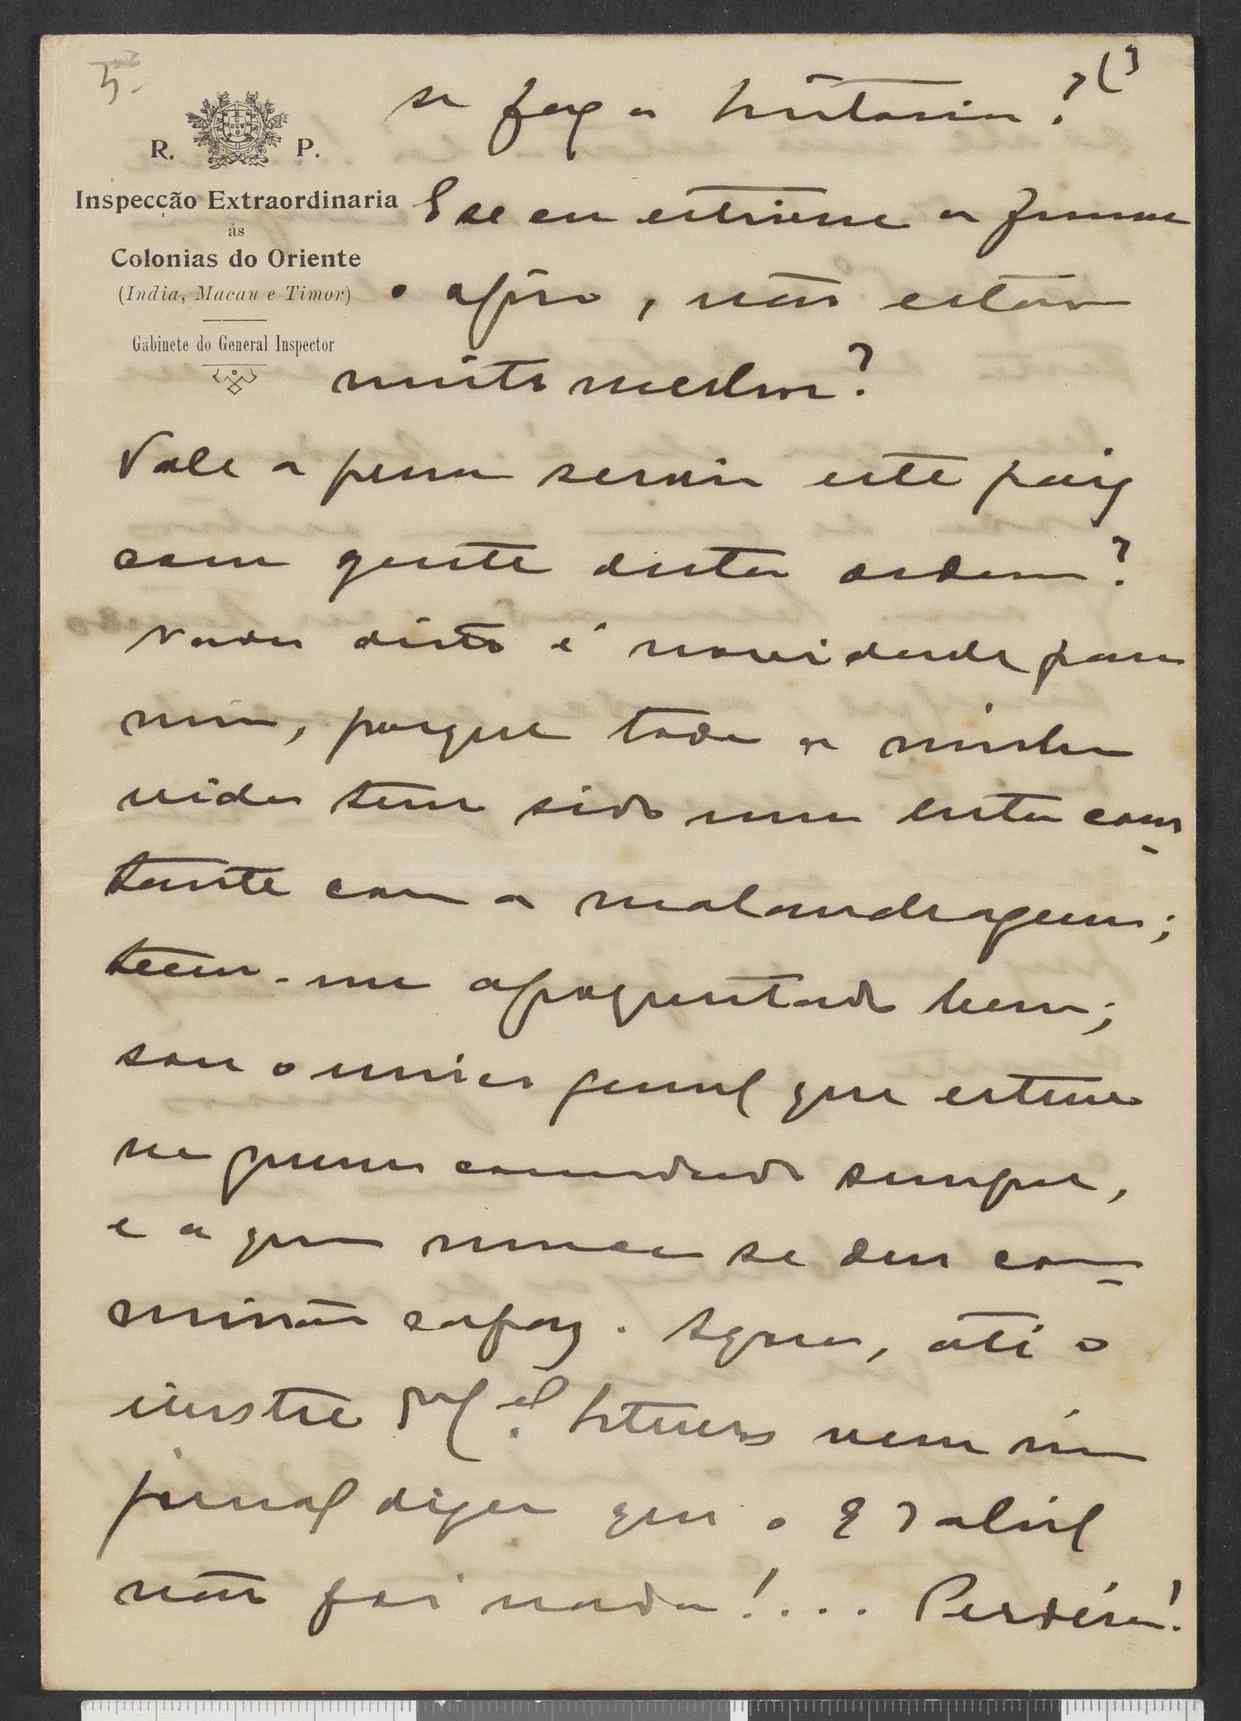 5-
R. P.
Inspecção Extraordinaria
ás
Colonias do Oriente
(India, Macau e Timor)
Gabinete do General Inspector
se faz a historia!?
E se eu estivesse a
o apôio, não estava
muito melhor?
Vale a pena servir este paiz
com gente desta ordem?
Nada disto é novidade para
mim, porque toda a minha
vida tem sido uma luta cons
tante com a malandragem;
teem-me apoquentado bem;
sou o unico general que esteve
na guerra comandando sempre,
e a quem nunca se deu co-
missão capaz. Agora, até o
ilustre vem n'um
jornal dizer que o 9 d'abril
não foi nada!... Perdéra!